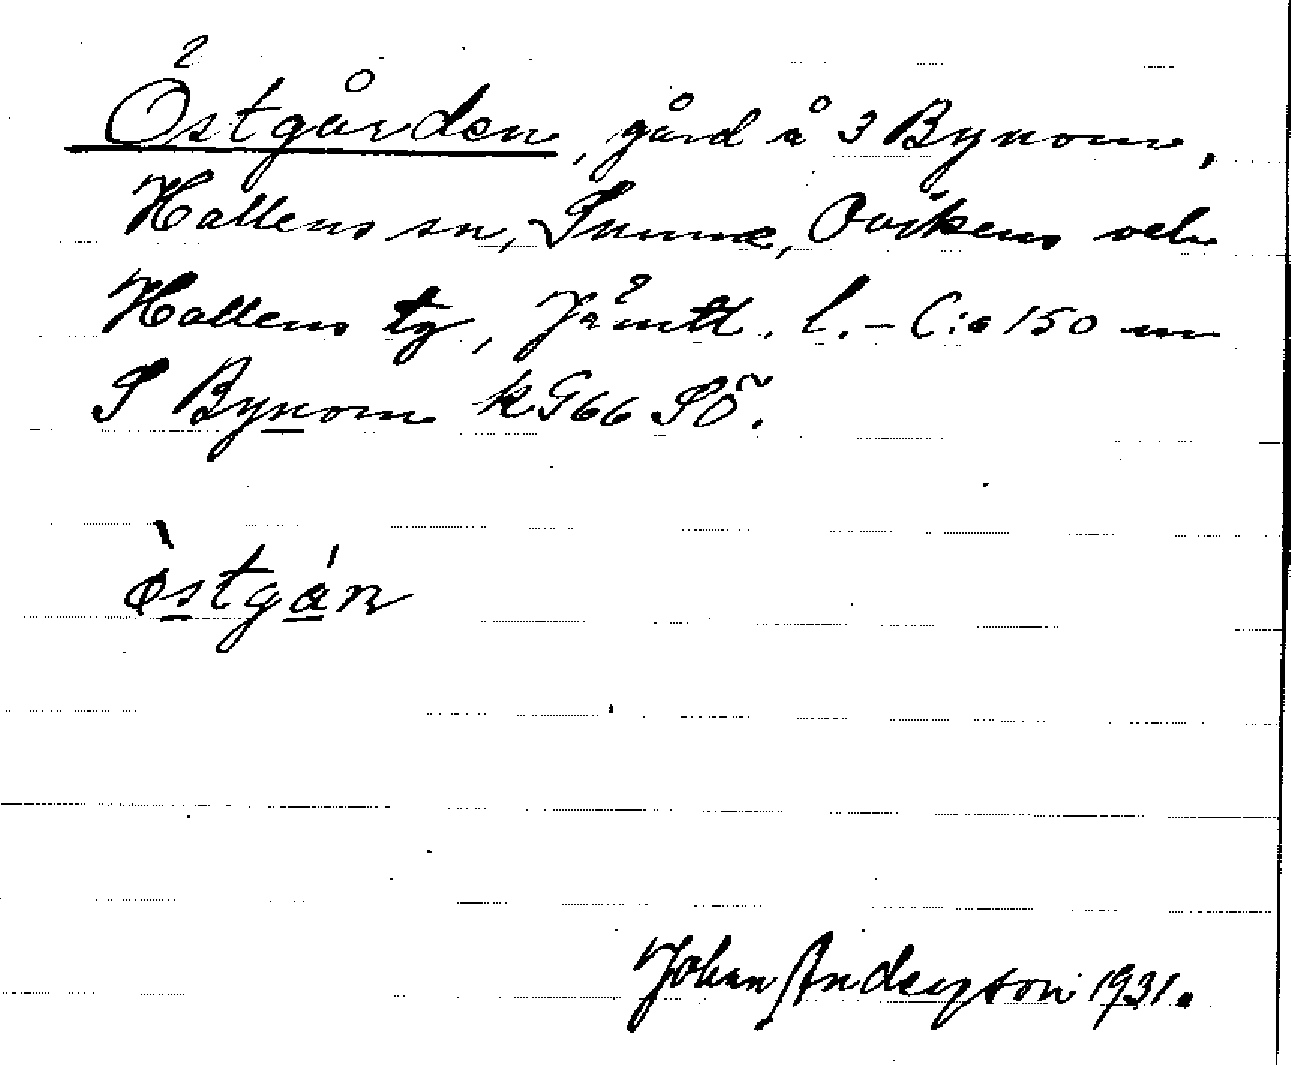 Östgården, gård å 3 Bynom,
Hallens sn, Sunne, Ovikens och
Hallens tg, Jämtl. l. – C:a 150 m
S Bynom k G66 SÖ.
östgán
Johan Anderson 1931.